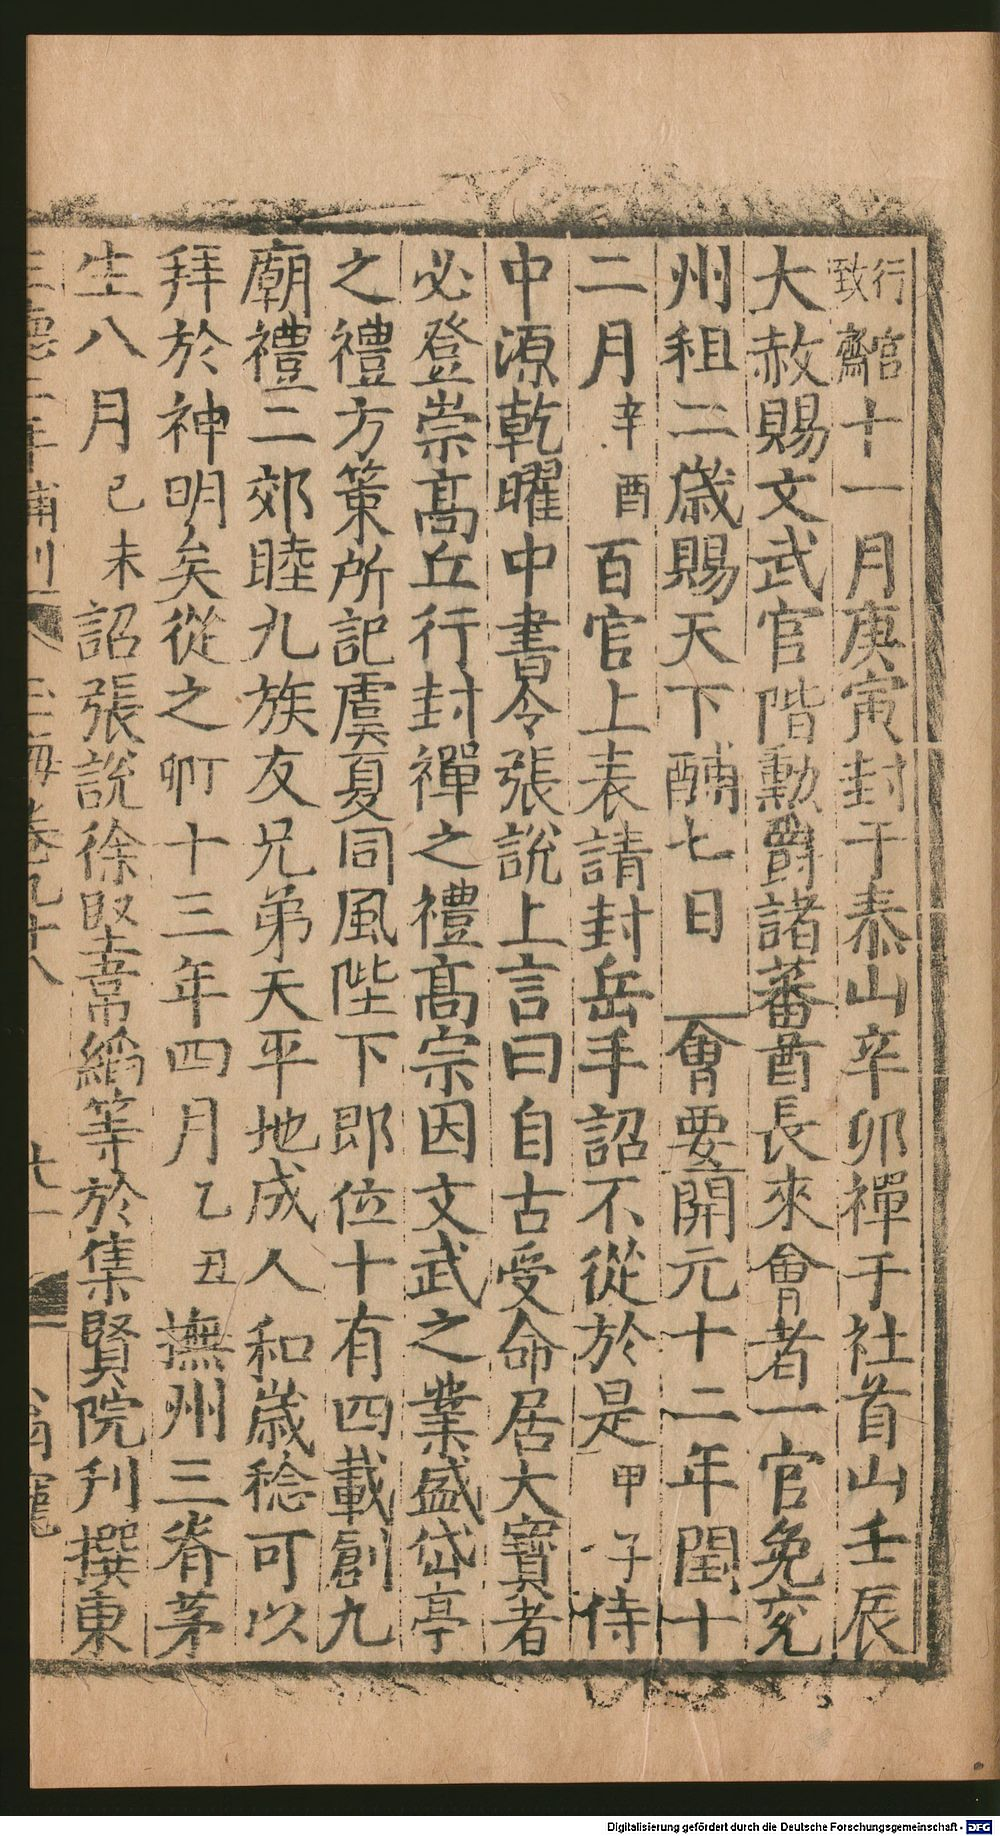 行宮致齋十一月庚寅封于泰山辛卯禪于社首山壬辰
大赦賜文武官階勳爵諸蕃酋長來會者一官免兖
州租二歲賜天下酺七日 會要開元十二年閏十
二月辛酉百官上表請封岳手詔不從於是甲子侍
中源乾曜中書令張說上言曰自古受命居大寶者
必登崇高丘行封禪之禮高宗因文武之業盛岱亭
之禮方策所記虞夏同風陛下即位十有四載創九
廟禮二郊睦九族友兄弟天平地成人和歲稔可以
拜於神明矣從之丁卯十三年四月乙丑撫州三脊茅
生八月己未詔張說徐堅韋縚等於集賢院刋撰東
玉海卷九十八
Digitalisierung gefördert durch die Deutsche Forschungsgemeinschaft - DFG